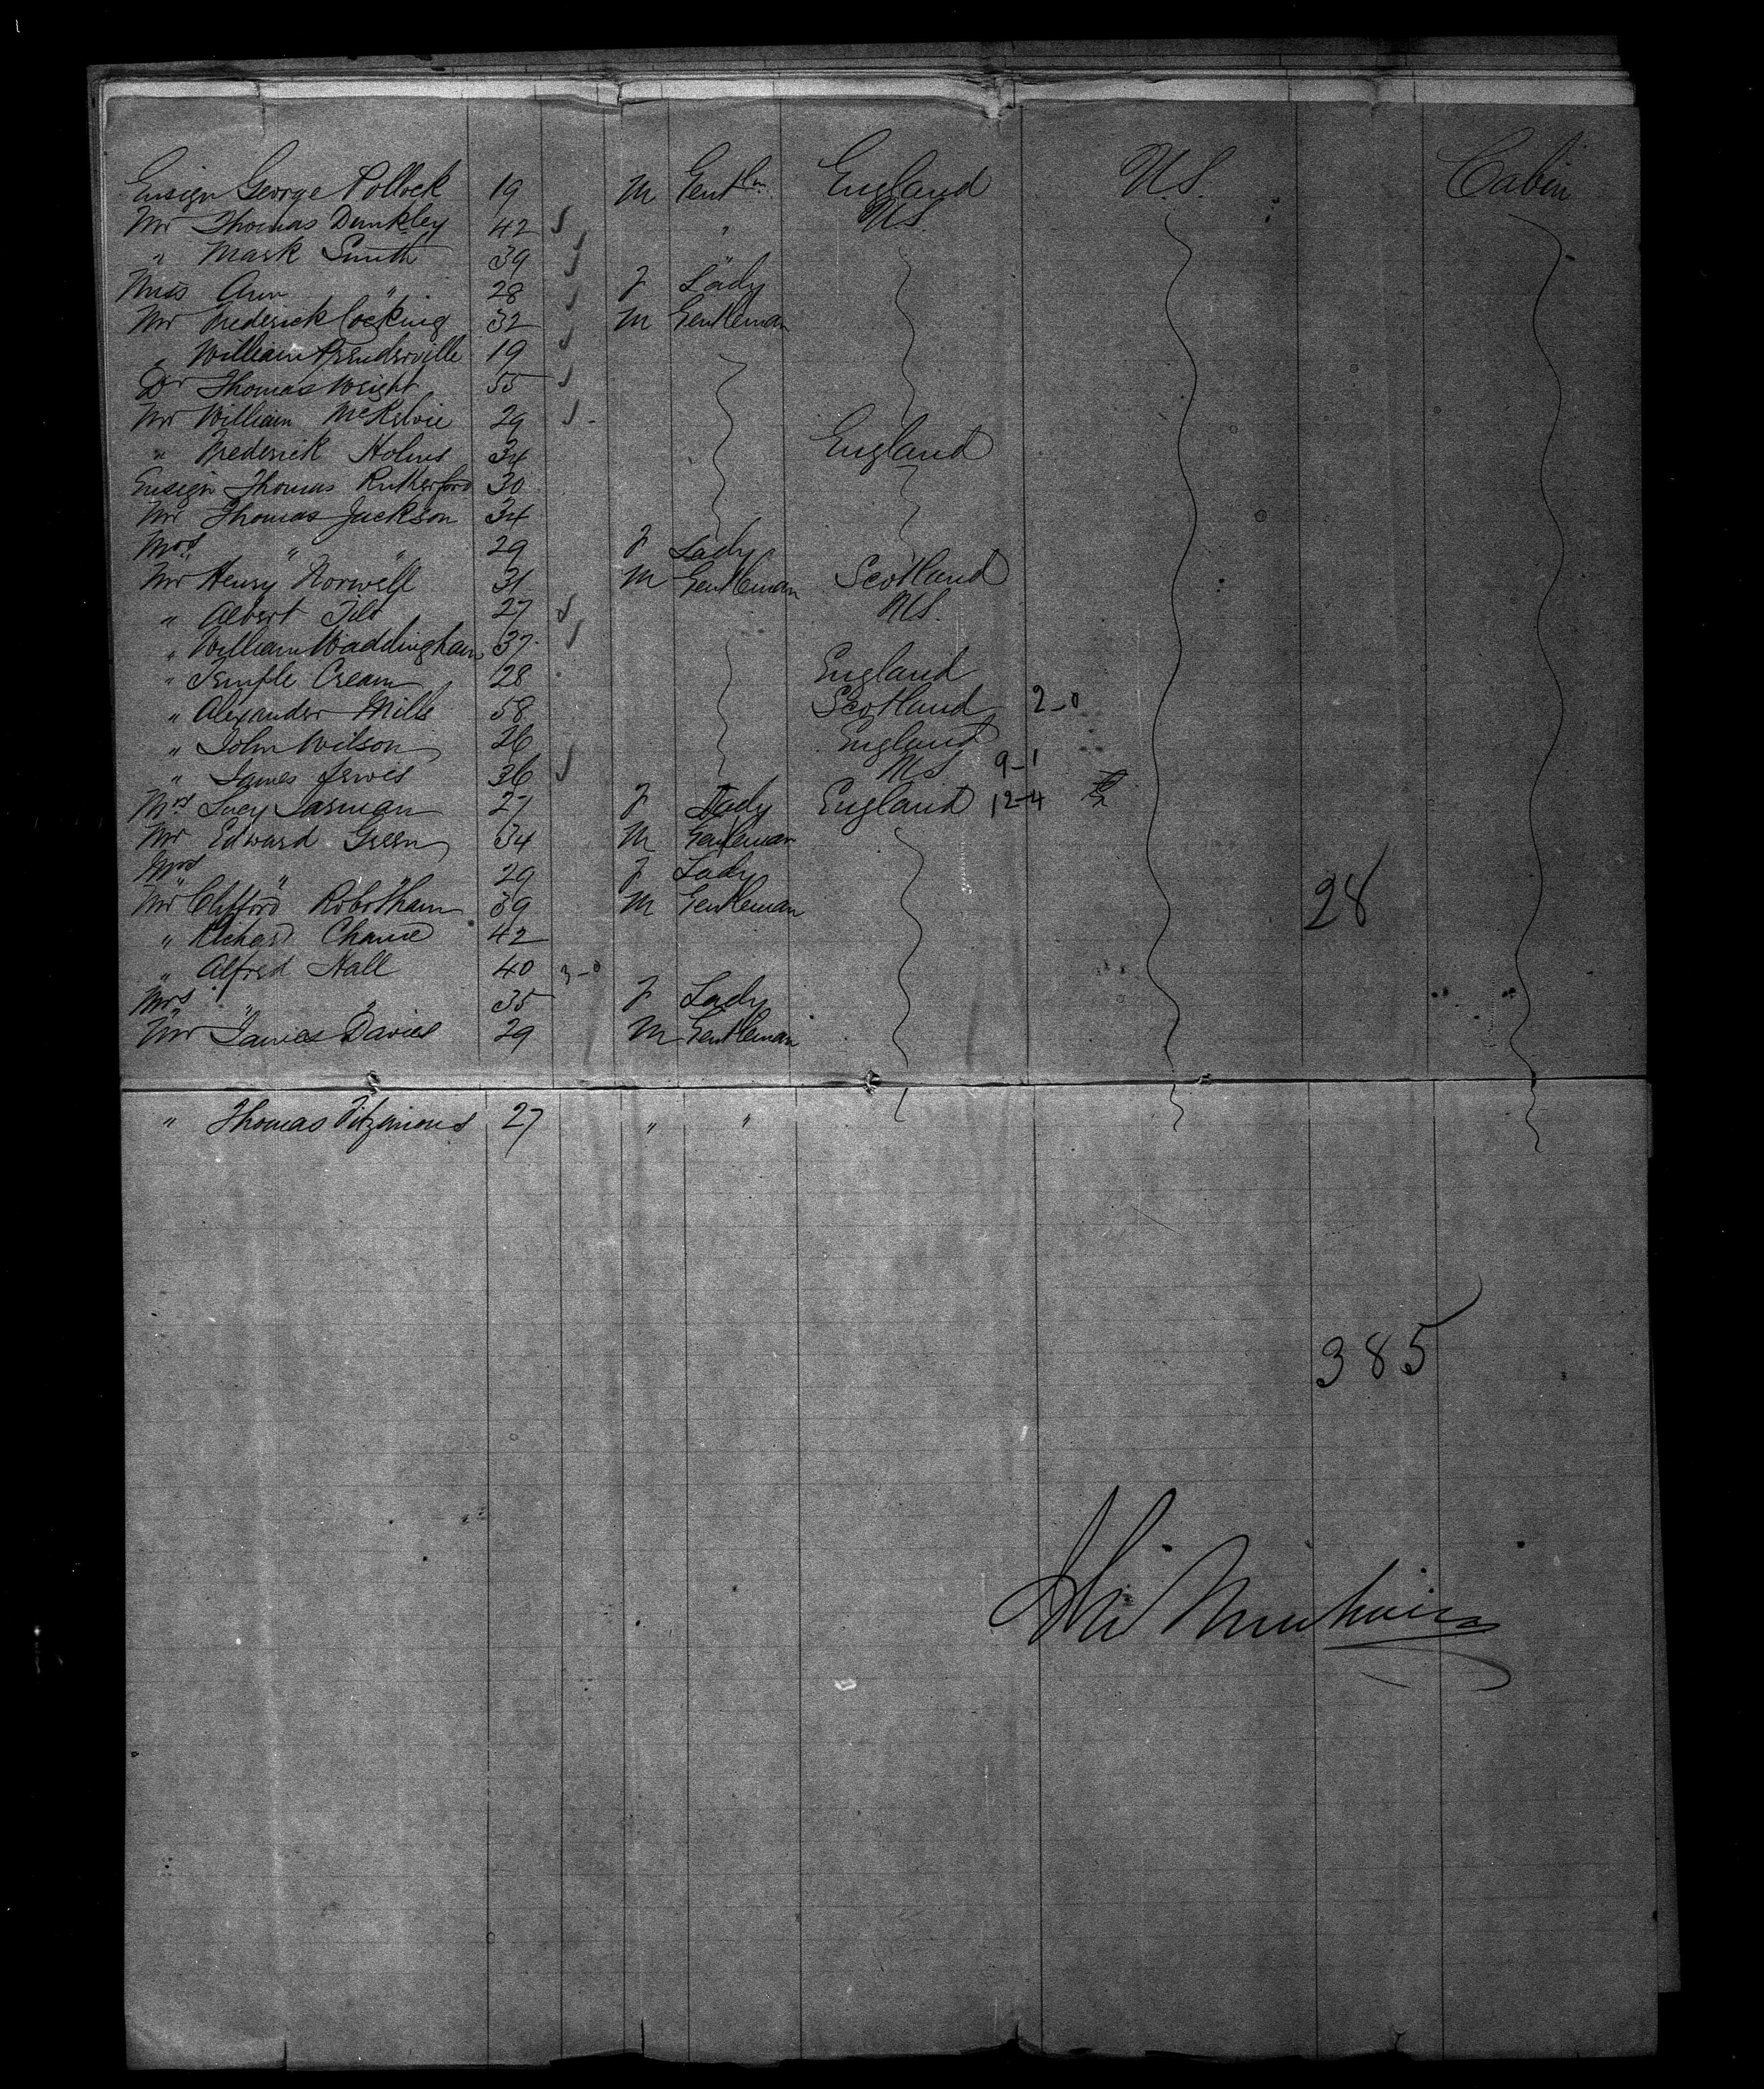 Ensign George Pollock 19 M Gentln England U.S. Cabin
Mr Thomas Dunkley 42 " U.S.
" Mark Smith 39 "
Miss Ann " 28 F Lady
Mr Frederick Cocking 32 M Gentleman
" William Prenderville 19
Dr Thomas Wright 55
Mr William McKelvie 29
" Frederick Holms 34 England
Ensign Thomas Rutherford 30
Mr Thomas Jackson 34
Mrs " " 29 F Lady
Mr Henry Norwell 31 M Gentleman Scotland
" Albert Tilt 27 U.S.
" William Waddingham 37
" Temple Cream 28 England
" Alexander Mills 58 Scotland 2-0
" John Wilson 26 England
" James Lewis 36 U.S. 9-1
Mrs Lucy Jarman 27 F Lady England 12-4
Mr Edward Green 34 M Gentleman
Mrs " " 29 F Lady
Mr Clifford Robotham 39 M Gentleman 28
" Richard Chance 42
" Alfred Hall 40 3-0
Mrs " " 35 F Lady
Mr James Davies 29 M Gentleman
" Thomas Fitzsimons 27 " "
385